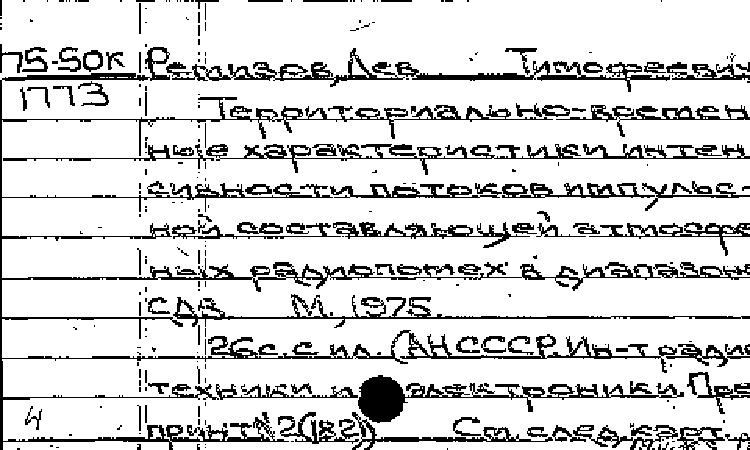 75-50к Ремизов, Лев Тимофеевич
1773 Территориально-времен
ные характеристики интен
сивности потоков импульс-
ной составляющей атмосфе
ных радиопомех в диапазоне
СДВ. М., 1975.
26с. с ил. (АН СССР. Ин-т радио
техники и электроники. Пре
4 принт № 2(182)) См. след. карт.